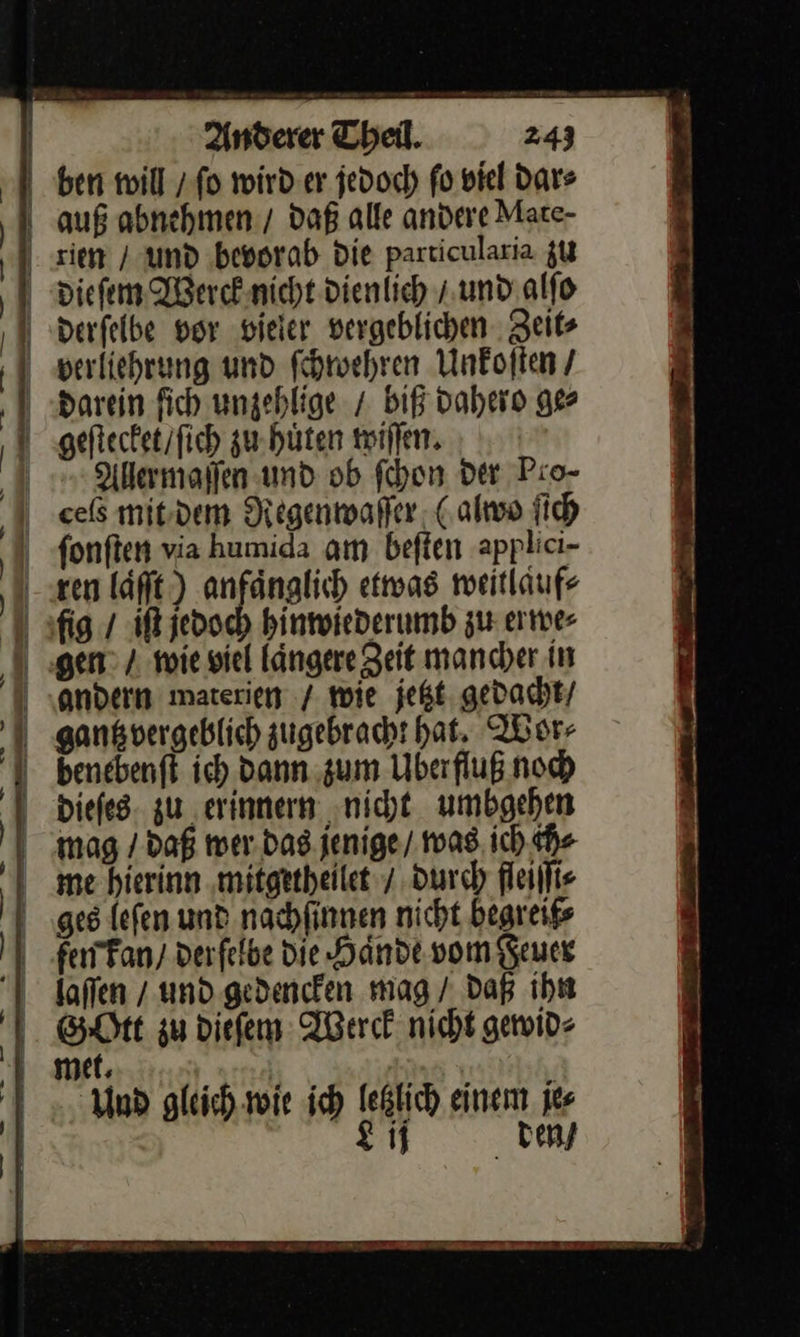 Anderer Theil. 243
ben will / ſo wird er jedoch ſo viel dar⸗
auß abnehmen / daß alle andere Mate-
rien / und bevorab die particularia zu
dieſem Werck nicht dienlich / und alſo
derſelbe vor vieler vergeblichen Zeit⸗
verliehrung und ſchwehren Unkoſten /
darein ſich unzehlige / biß dahero ge⸗
geſtecket / ſich zu hüten wiſſen.
Allermaſſen und ob ſchon der Pro-
ceſs mit dem Regenwaſſer (alwo ſich
ſonſten via humida am beſten applici-
ren läſſt) anfänglich etwas weitläuf⸗
fig / iſt jedoch hinwiederumb zu erwe⸗
gen / wie viel längere Zeit mancher in
andern materien / wie jetzt gedacht /
gantz vergeblich zugebracht hat. Wor⸗
benebenſt ich dann zum Uberfluß noch
dieſes zu erinnern nicht umbgehen
mag / daß wer das jenige / was ich ihe⸗
me hierinn mitgetheilet / durch fleiſſi⸗
ges leſen und nachſinnen nicht begreif⸗
fen kan / derſelbe die Hände vom Feuer
laſſen / und gedencken mag / daß ihn
GOtt zu dieſem Werck nicht gewid⸗
met.
Und gleich wie ich letzlich einem je⸗
L ij den /